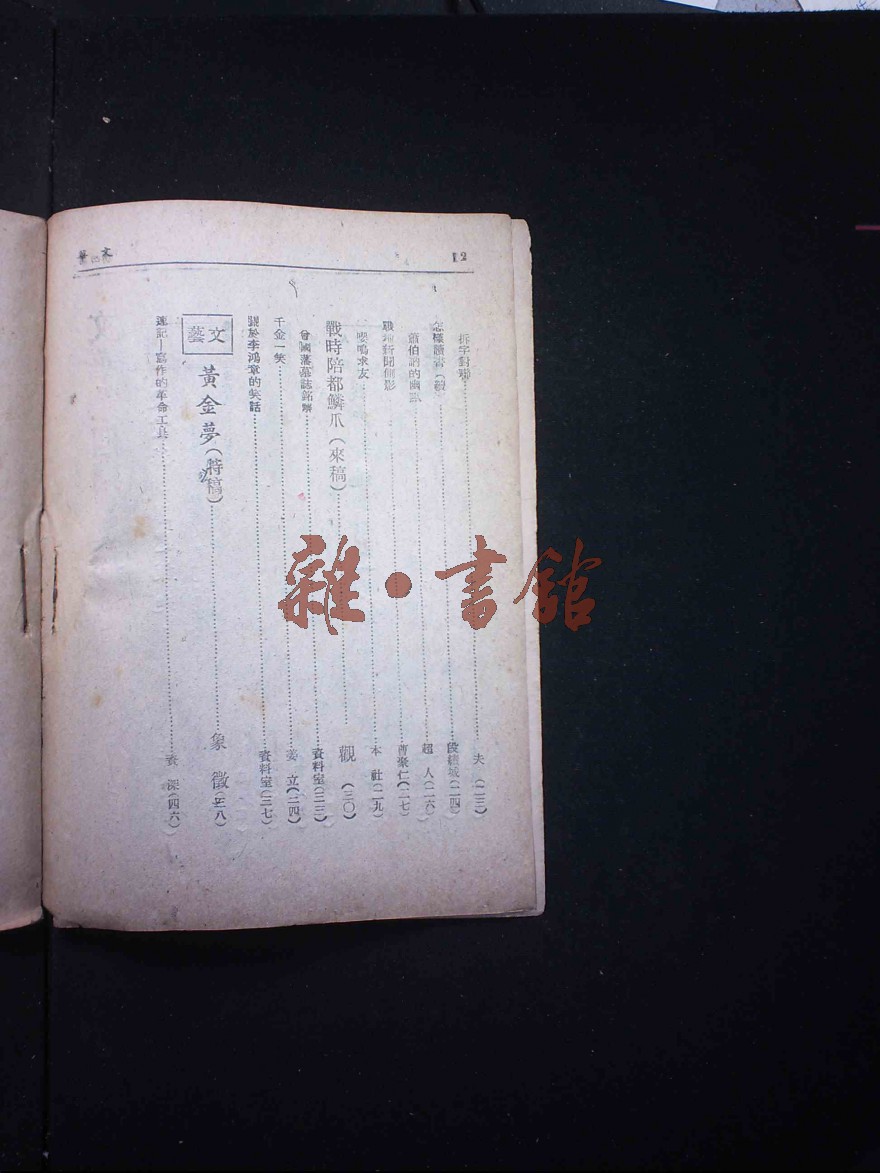 12
拆字對聯 夫 (二三)
怎樣讀書(續) 段繼城(二四)
蕭伯訥的幽默 超 人(二六)
戰地新聞側影 曹聚仁(二七)
嚶鳴求友 本 社(二九)
戰時陪都鱗爪(來稿) 觀 (三〇)
曾國藩墓誌銘 資料室(三三)
千金一笑 姜 立(三四)
關於李鴻章的笑話 資料室(三七)
文藝
黃金夢(特稿) 象 徵(三八)
速記—寫作的革命工具 資 深(四六)
雜·書館